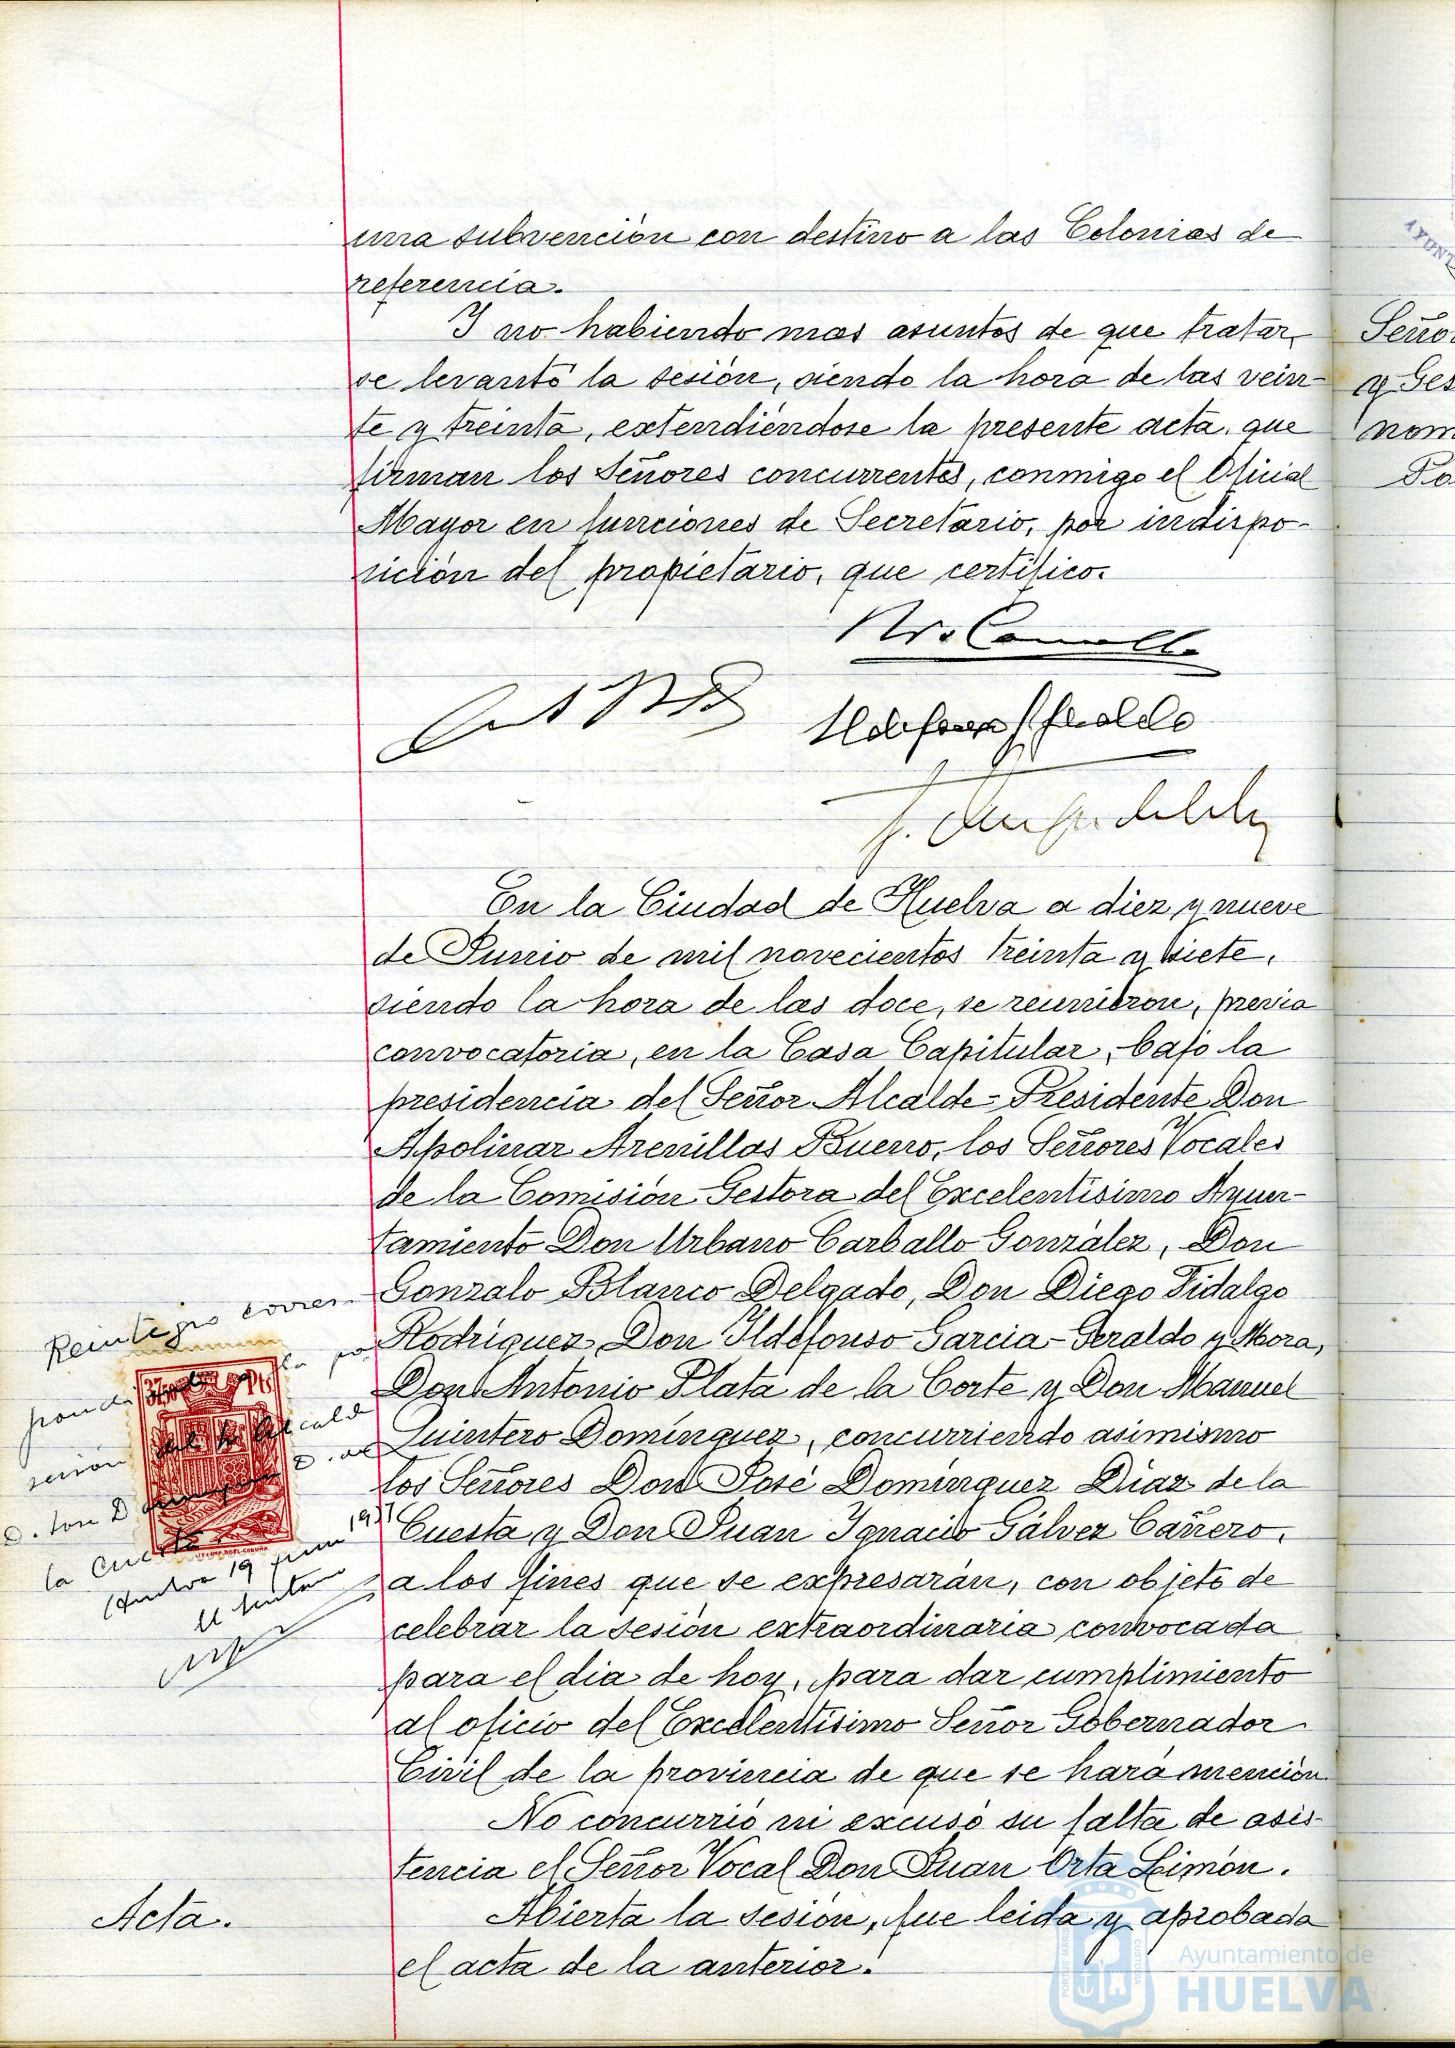 una subvención con destino a las Colonias de
referencia.
Y no habiendo mas asuntos de que tratar,
se levantó la sesión, siendo la hora de las vein-
te y treinta, extendiéndose la presente acta, que
firman los Señores concurrentes, conmigo el Oficial
Mayor en funciones de Secretario, por indispo-
sición del propietario, que certifico.
En la Ciudad de Huelva a diez y nueve
de Junio de mil novecientos treinta y siete,
siendo la hora de las doce, se reunieron, previa
convocatoria, en la Casa Capitular, bajo la
presidencia del Señor Alcalde-Presidente Don
Apolinar Arenillas Bueno, los Señores Vocales
de la Comisión Gestora del Excelentísimo Ayun-
tamiento Don Urbano Carballo González, Don
Gonzalo Blanco Delgado, Don Diego Fidalgo
Rodríguez, Don Ildefonso García-Geraldo y Mora,
Don Antonio Plata de la Corte y Don Manuel
Quintero Domínguez, concurriendo asimismo
los Señores Don José Domínguez Díaz de la
Cuesta y Don Juan Ignacio Gálvez Cañero,
a los fines que se expresarán, con objeto de
celebrar la sesión extraordinaria convocada
para el dia de hoy, para dar cumplimiento
al oficio del Excelentísimo Señor Gobernador
Civil de la provincia de que se hará mención.
No concurrió ni excusó su falta de asis-
tencia el Señor Vocal Don Juan Orta Limón.
Abierta la sesión, fue leida y aprobada
el acta de la anterior.
Reintegro corres-
la po
del Sr Alcalde
D. José D
la Cuesta
Huelva 19 junio 1937
Acta.
Pts
Señor
y Ges
nom
Po
AYUNT
Ayuntamiento de
HUELVA